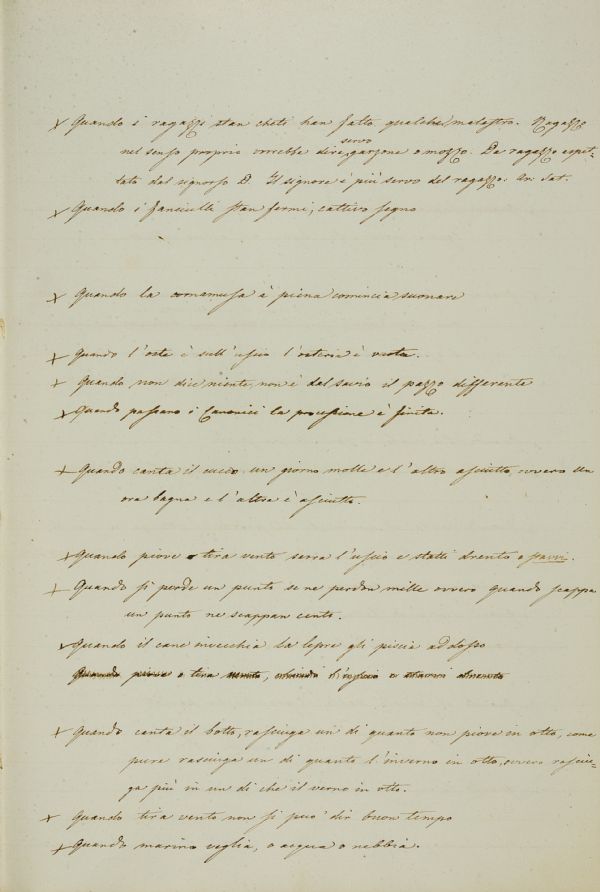 Quando i ragazzi stan cheti han fatto qualche malestro. Ragazzo
servo
nel senso proprio vorrebbe dire garzone o mozzo. Da ragazzo aspet-
tato dal signorso D. Il signore è più servo del ragazzo: Ar: Sat.
Quando i fanciulli stan fermi, cattivo segno
Quando la cornamusa è piena comincia suonare
Quando l'oste è sull'uscio l'osteria è vuota.
Quando non dice niente, non è dal savio il pazzo differente
Quando passano i Canonici la processione è finita.
Quando canta il cucco un giorno molle e l'altro asciutto, ovvero Un
ora bagna e l'altra è asciutto.
Quando piove e tira vento serra l'uscio e statti drento o stavvi.
Quando si perde un punto se ne perdon mille ovvero quando scappa
un punto ne scappan cento.
Quando il cane invecchia la lepre gli piscia addosso
Quando piove o tira vento, chiudi l'uscio e
Quando canta il botto, rasciuga un dì quanto non piove in otto, come
pure rasciuga un dì quanto l'inverno in otto, ovvero rasciu-
ga più in un dì che il verno in otto.
Quando tira vento non si può dir buon tempo
Quando marino veglia, o acqua o nebbia.